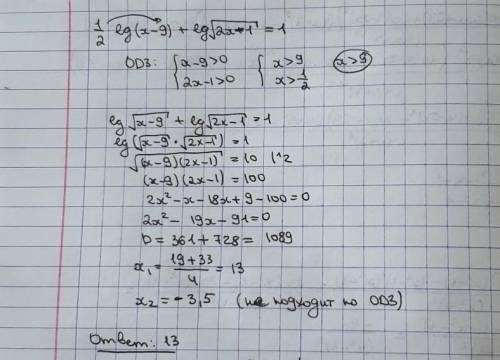 1/2 lg(x-9) + lg√(2x-1) = 1
ОДЗ: { x-9>0 { x>9 x>9
2x-1>0 x>1/2
lg√(x-9) + lg√(2x-1) = 1
lg(√(x-9) · √(2x-1)) = 1
√((x-9)(2x-1)) = 10 |^2
(x-9)(2x-1) = 100
2x² - x - 18x + 9 - 100 = 0
2x² - 19x - 91 = 0
D = 361 + 728 = 1089
x₁ = (19+33)/4 = 13
x₂ = -3,5 (не подходит по ОДЗ)
Ответ: 13